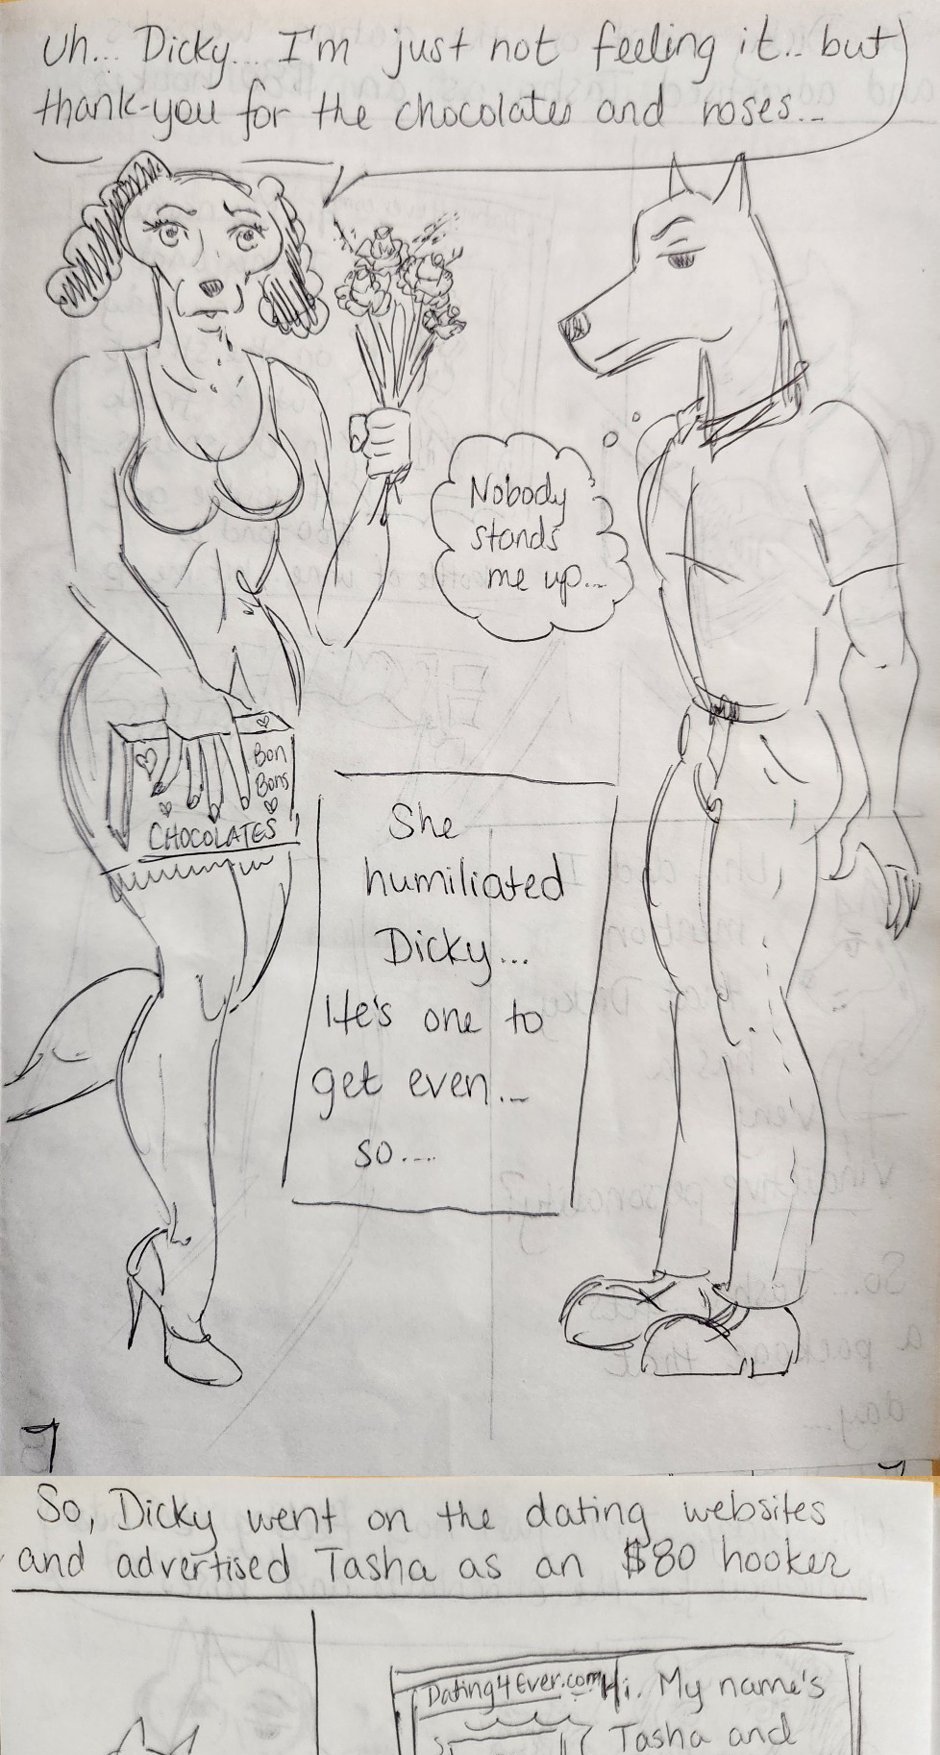 Uh... Dicky... I'm just not feeling it.. but
thank-you for the chocolates and roses...
Nobody
stands
me up...
Bon
Bons
CHOCOLATES
She
humiliated
Dicky...
He's one to
get even...
so....
7
So, Dicky went on the dating websites
and advertised Tasha as an $80 hooker
Dating4Ever.com
Hi. My name's
Tasha and